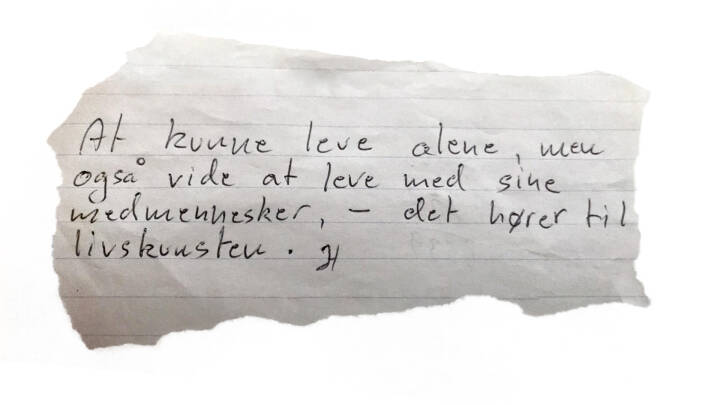 At kunne leve alene, men
også vide at leve med sine
medmennesker, – det hører til
livskunsten. H